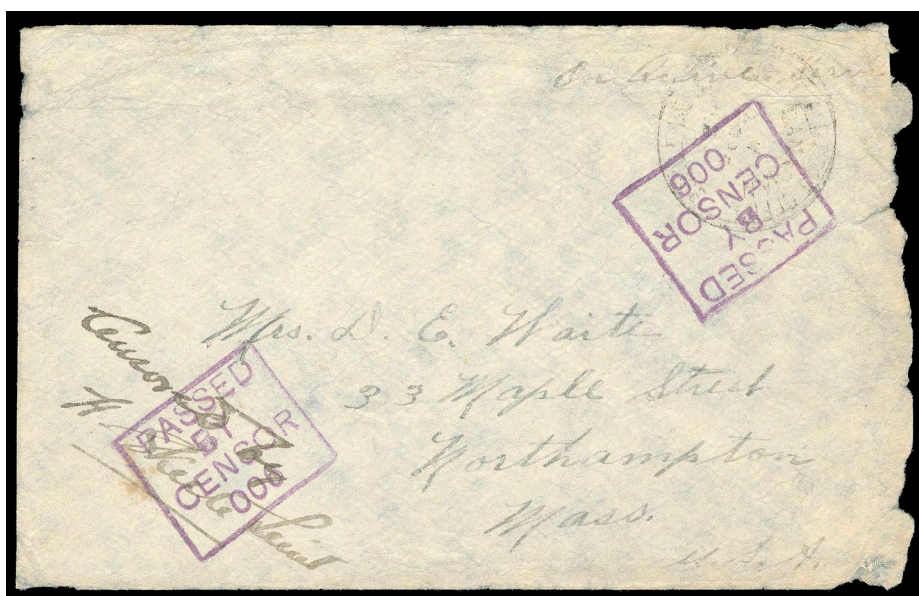 On Active Serv
PASSED
BY
CENSOR
006
Mrs. D. E. Waite
33 Maple Street
Northampton
Mass.
U.S.A.
Censored by
PASSED
BY
CENSOR
006